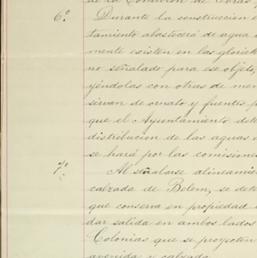 de la Comision de Obras
6.º Durante la construccion
tamiento abastecerá de agua
mente existen en las glorie
no señalado para ese objeto,
jéndolas con otras de men
sirvan de ornato y fuentes p
que el Ayuntamiento dete
distribucion de las aguas
se hará por las comisiones
7.º Al señalarse alineamien
calzada de Belem, se dete
que conserva en propiedad
dar salida en ambos lados
Colonias que se proyecten
avenida y calzada